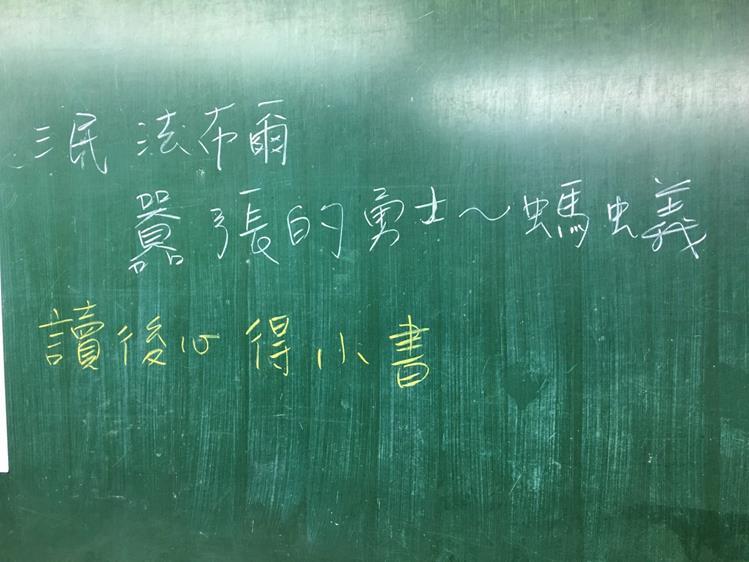 三民 法布爾
囂張的勇士~螞蟻
讀後心得小書